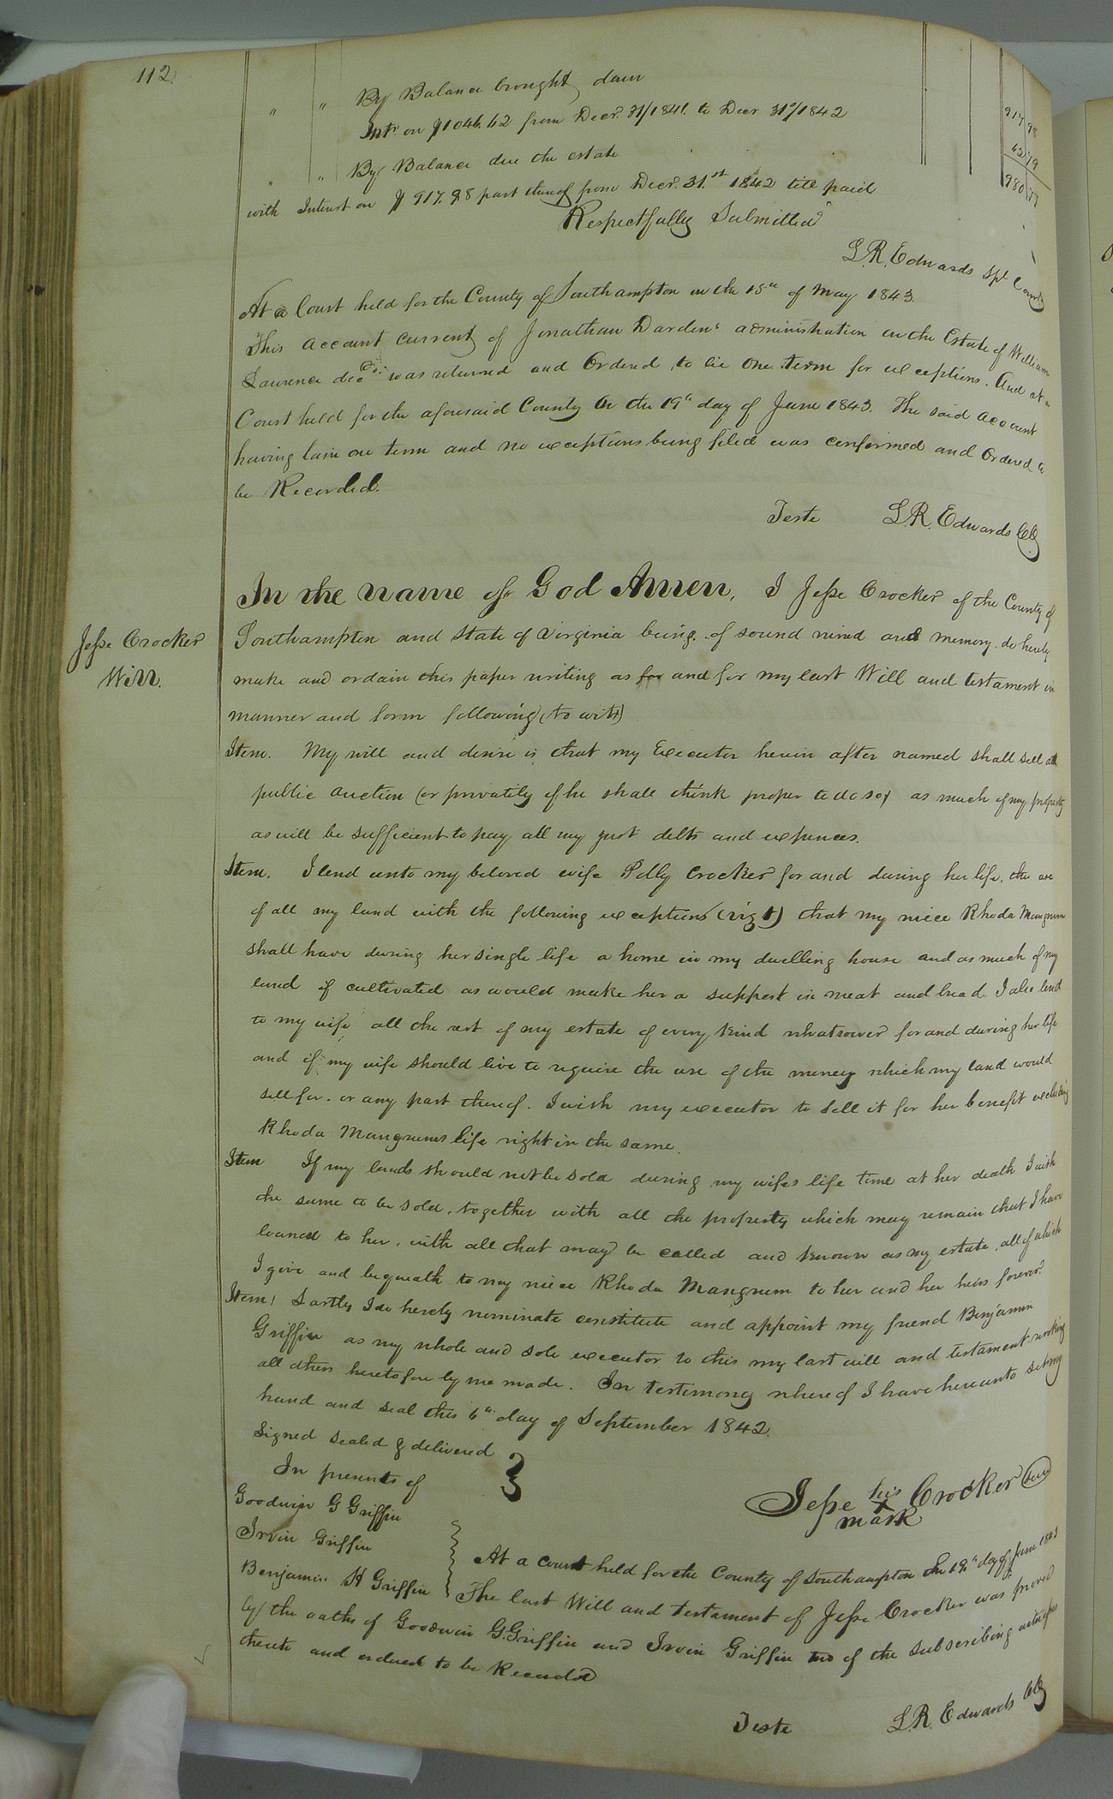 112
" " By Balance brought down 917 98
Intr on $1046.62 from Decr. 31/1841. to Decr 31st/1842 42 79
" " By Balance due the estate
with Interest on $917.98 part thereof from Decr. 31.st 1842 till paid
Respectfully Submitted
L.R. Edwards Spl Comr
At a Court held for the County of Southampton on the 15th of May 1843.
This account current of Jonathan Darden's administration on the Estate of William
Lawrence decd. was returned and Ordered to lie one term for exceptions. And at a
Court held for the aforesaid County on the 19th day of June 1843. The said account
having lain one term and no exceptions being filed was confirmed and Ordered to
be Recorded.
Teste L.R. Edwards CC
Jesse Crocker
Will.
In the name of God Amen, I Jesse Crocker of the County of
Southampton and State of Virginia being of sound mind and memory do hereby
make and ordain this paper writing as for and for my last Will and testament in
manner and form following (to wit)
Item. My will and desire is that my Executor herein after named shall sell at
public auction (or privatily if he shall think proper to do so) as much of my property
as will be sufficient to pay all my just debts and expences.
Item. I lend unto my beloved wife Polly Crocker for and during her life, the use
of all my land with the following exceptions (vizt) that my niece Rhoda Mangrum
shall have during her single life a home in my dwelling house and as much of my
land if cultivated as would make her a support in meat and bread. I also lend
to my wife all the rest of my estate of every kind whatsoever for and during her life
and if my wife should live to require the use of the money which my land would
sell for, or any part thereof. I wish my executor to sell it for her benefit excluding
Rhoda Mangrums life right in the same.
Item If my lands should not be sold during my wifes life time at her death I wish
the same to be sold, together with all the property which may remain that I have
loaned to her, with all that may be called and known as my estate, all of which
I give and bequeath to my niece Rhoda Mangrum to her and her heirs forever.
Item, Lastly I do hereby nominate constitute and appoint my friend Benjamin
Griffin as my whole and sole executor to this my last will and testament revoking
all others heretofore by me made. In testimony whereof I have hereunto set my
hand and seal this 6th day of September 1842.
Signed sealed & delivered
In presents of
Jesse his Crocker Seal
X
mark
Goodwin G Griffin
Irvin Griffin
Benjamin H Griffin
At a court held for the County of Southampton the 19th day of June 1843
The last Will and testament of Jesse Crocker was proved
by the oaths of Goodwin G. Griffin and Irvin Griffin two of the subscribing witnesses
thereto and ordered to be Recorded
Teste L.R. Edwards CC